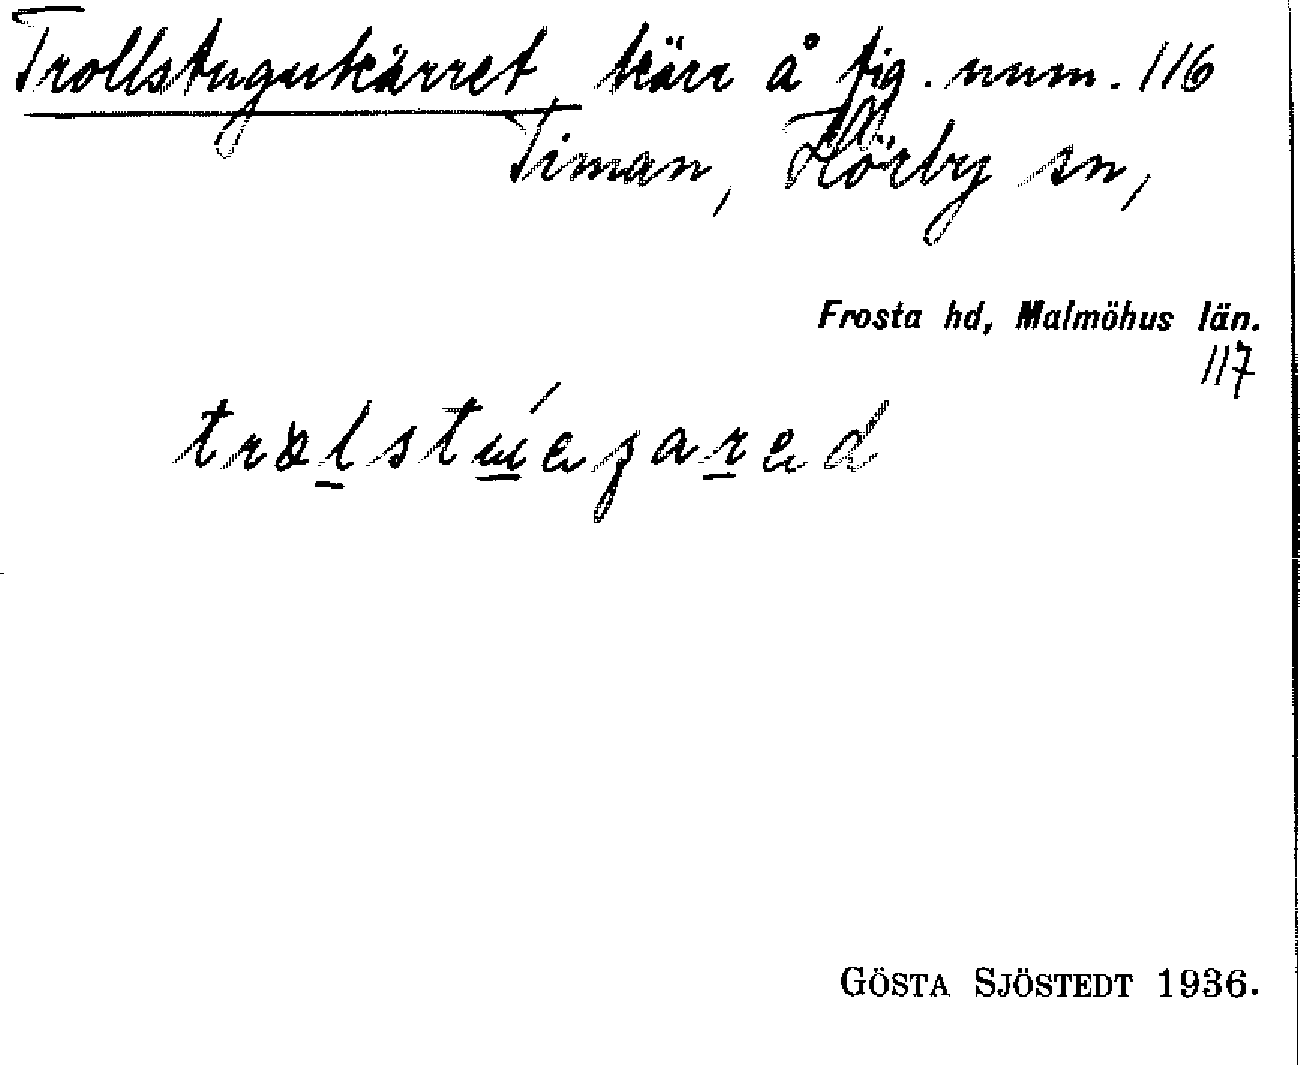 Trollstugukärret kärr å fig. num. 116
Timan, Hörby sn,
Frosta hd, Malmöhus län.
117
GÖSTA SJÖSTEDT 1936.